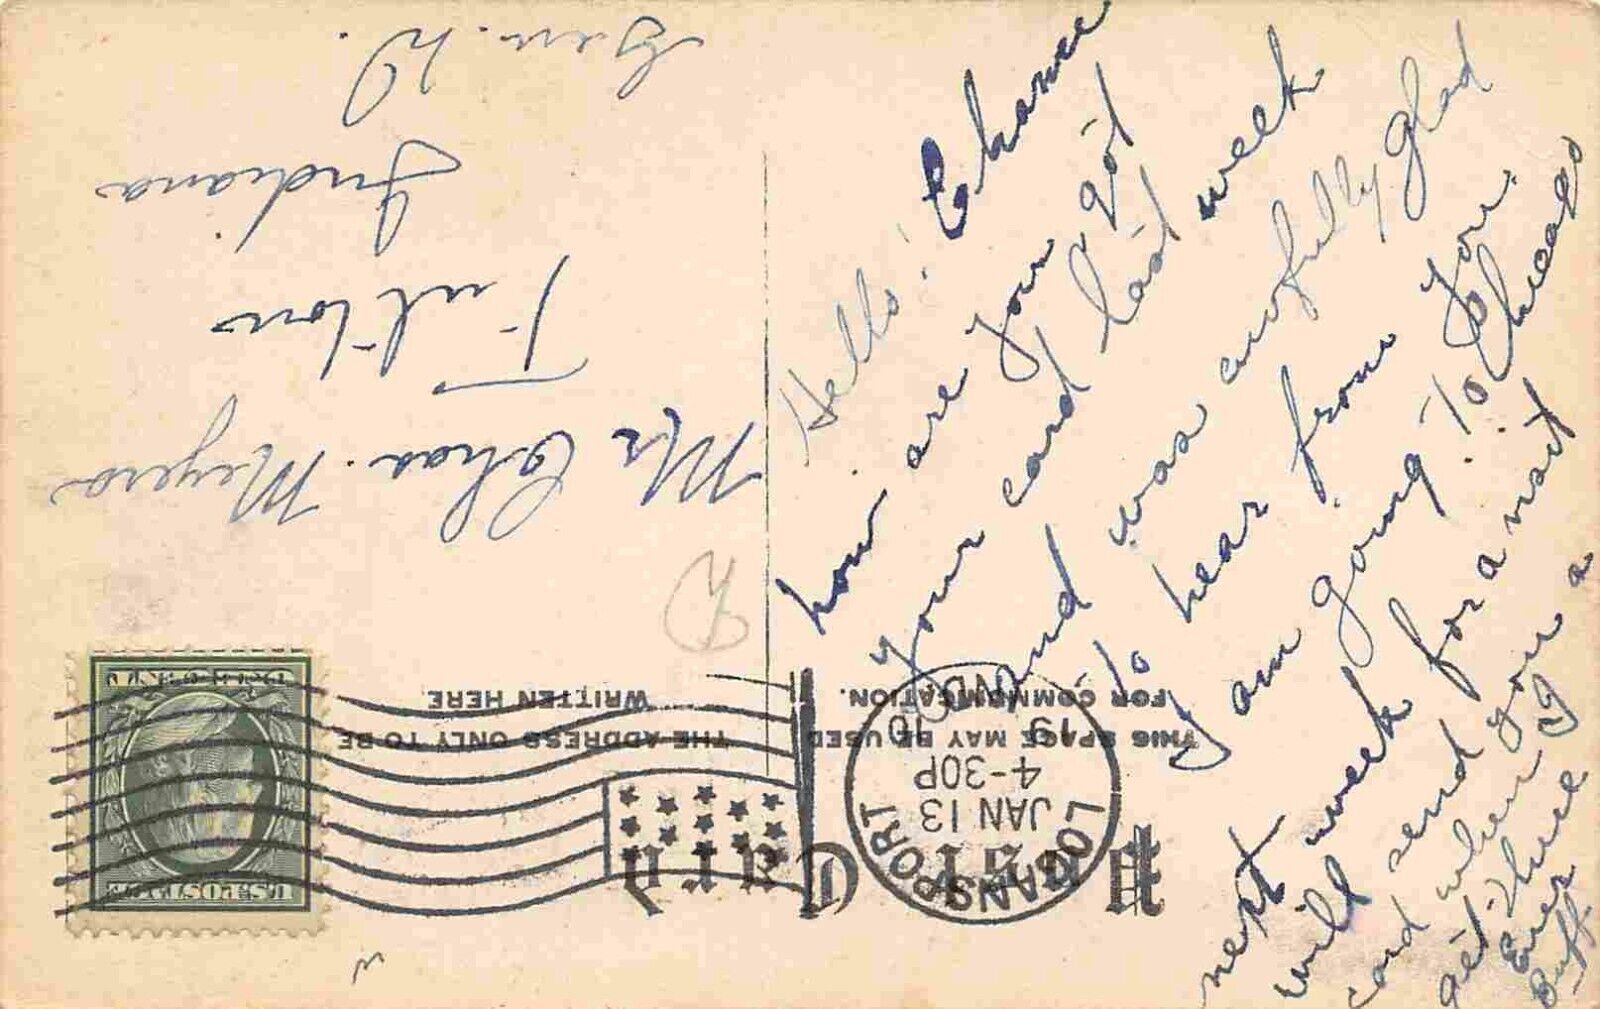 Post Card
THIS SPACE MAY BE USED
FOR COMMUNICATION.
THE ADDRESS ONLY TO BE
WRITTEN HERE
LOGANSPORT
JAN 13
4-30P
19
IND.
U.S. POSTAGE
Mr Chas. Meyers
Fulton
Indiana
Gen. D.
Hello! Chance
how are you got
your card last week
and was awfully glad
to hear from you.
I am going to Chicago
next week for a visit
will send you a
card when I
get there
Ever
Buff